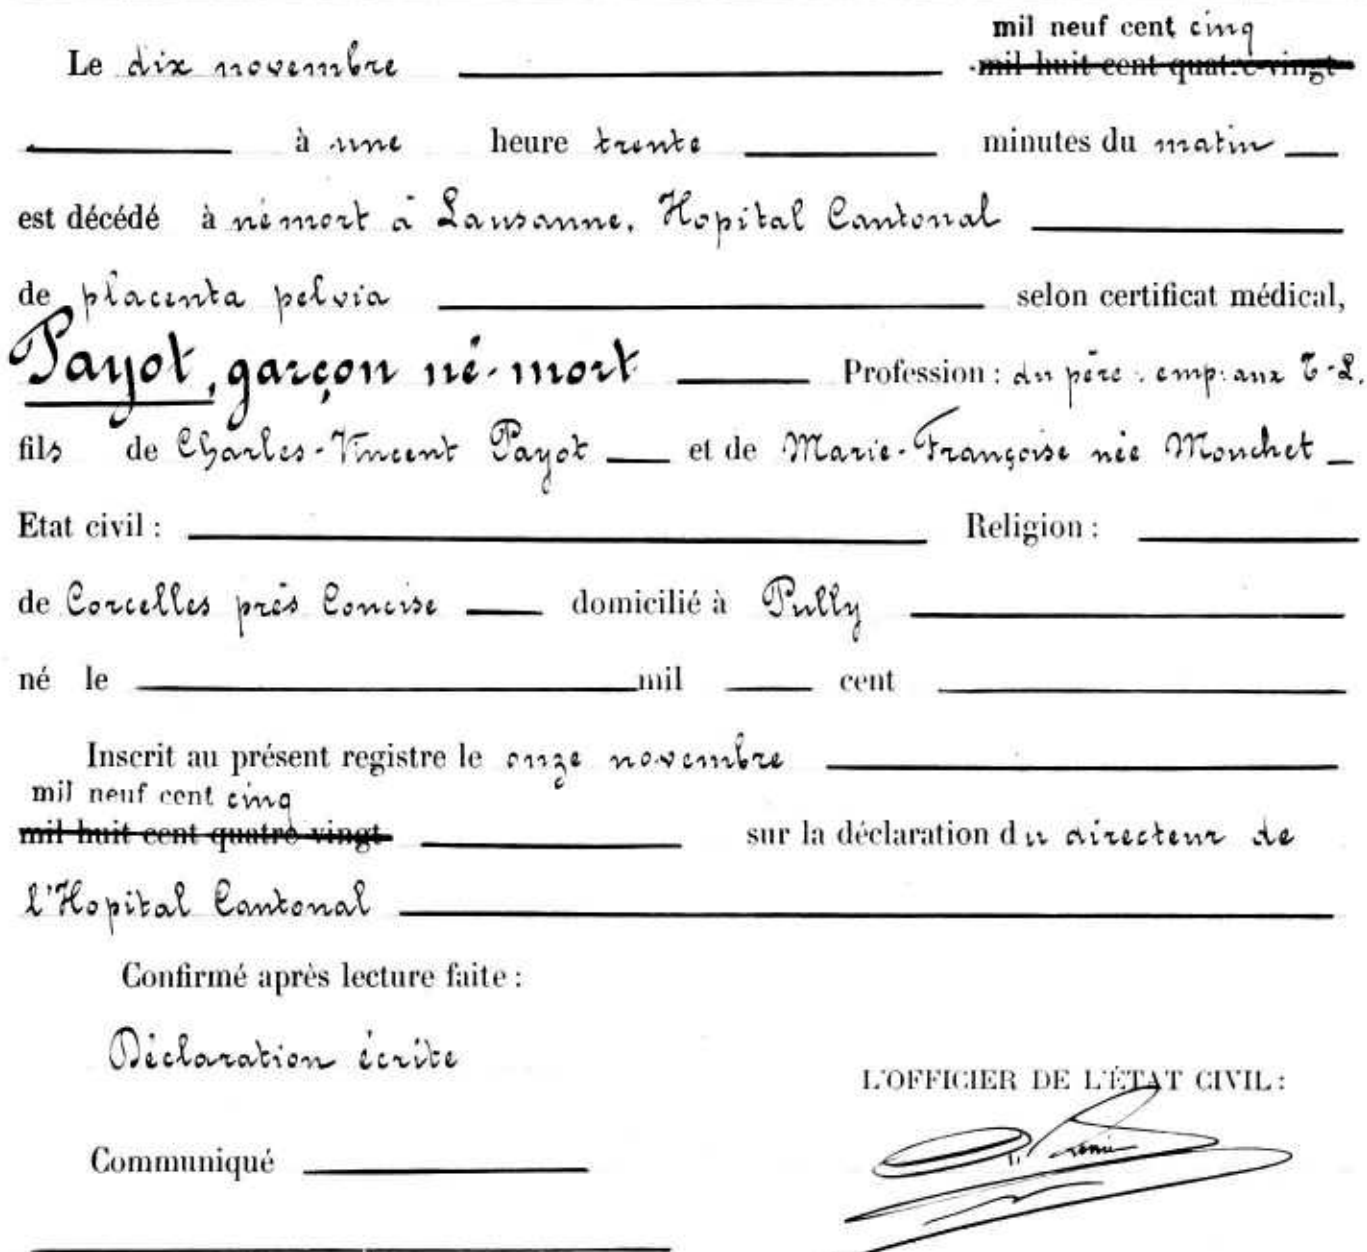 mil neuf cent cinq
Le dix novembre mil huit cent quatre-vingt
à une heure trente minutes du matin
est décédé à né mort à Lausanne, Hopital Cantonal
de placenta pelvia selon certificat médical,
Payot, garçon né-mort Profession : du père : emp. aux T-L.
fils de Charles-Vincent Payot et de Marie-Françoise née Monchet
Etat civil : Religion :
de Corcelles près Concise domicilié à Pully
né le mil cent
Inscrit au présent registre le onze novembre
mil neuf cent cinq
mil huit cent quatre vingt sur la déclaration du directeur de
l'Hopital Cantonal
Confirmé après lecture faite :
Déclaration écrite
L'OFFICIER DE L'ÉTAT CIVIL :
Communiqué